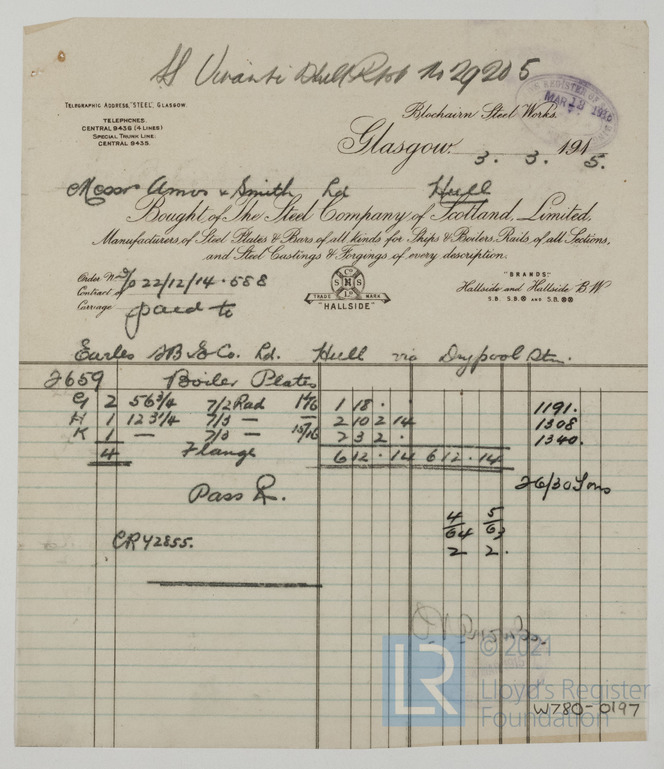 Hull Rpt No 29205
TELEGRAPHIC ADDRESS, "STEEL", GLASGOW.
TELEPHONES.
CENTRAL 9436 (4 LINES)
SPECIAL TRUNK LINE:
CENTRAL 9435.
MAR 18 1915
Blochairn Steel Works.
Glasgow 3. 3. 1915.
Messrs Amos & Smith Ld Hull
Bought of The Steel Company of Scotland, Limited,
Manufacturers, of Steel Plates & Bars of all kinds for Ships & Boilers, Rails, of all Sections,
and Steel Castings & Forgings of every description.
Order No 22/12/14 · 558
Contract of
Carriage paid to
S Co S
H
S Ld
TRADE MARK
"HALLSIDE"
"BRANDS"
Hallside and Hallside B.W
S.B. S.B. AND S.B.
Earles SB & E Co. Ld. Hull via Drypool Stn.
2659 Boiler Plates
G 2 56 3/4 7/2 Rad 1 18 · · 1191.
H 1 12 3 1/4 7/3 — — 2 10 2 14 1308
K 1 — 7/3 — 15/16 2 3 2 · 1340.
4 Flange 6 12 · 14 6 12 · 14
26/30 Tons
Pass
4 5
64 63
2 2.
CR42855.
© 2021
LR
Lloyd's Register
Foundation
W780-0197